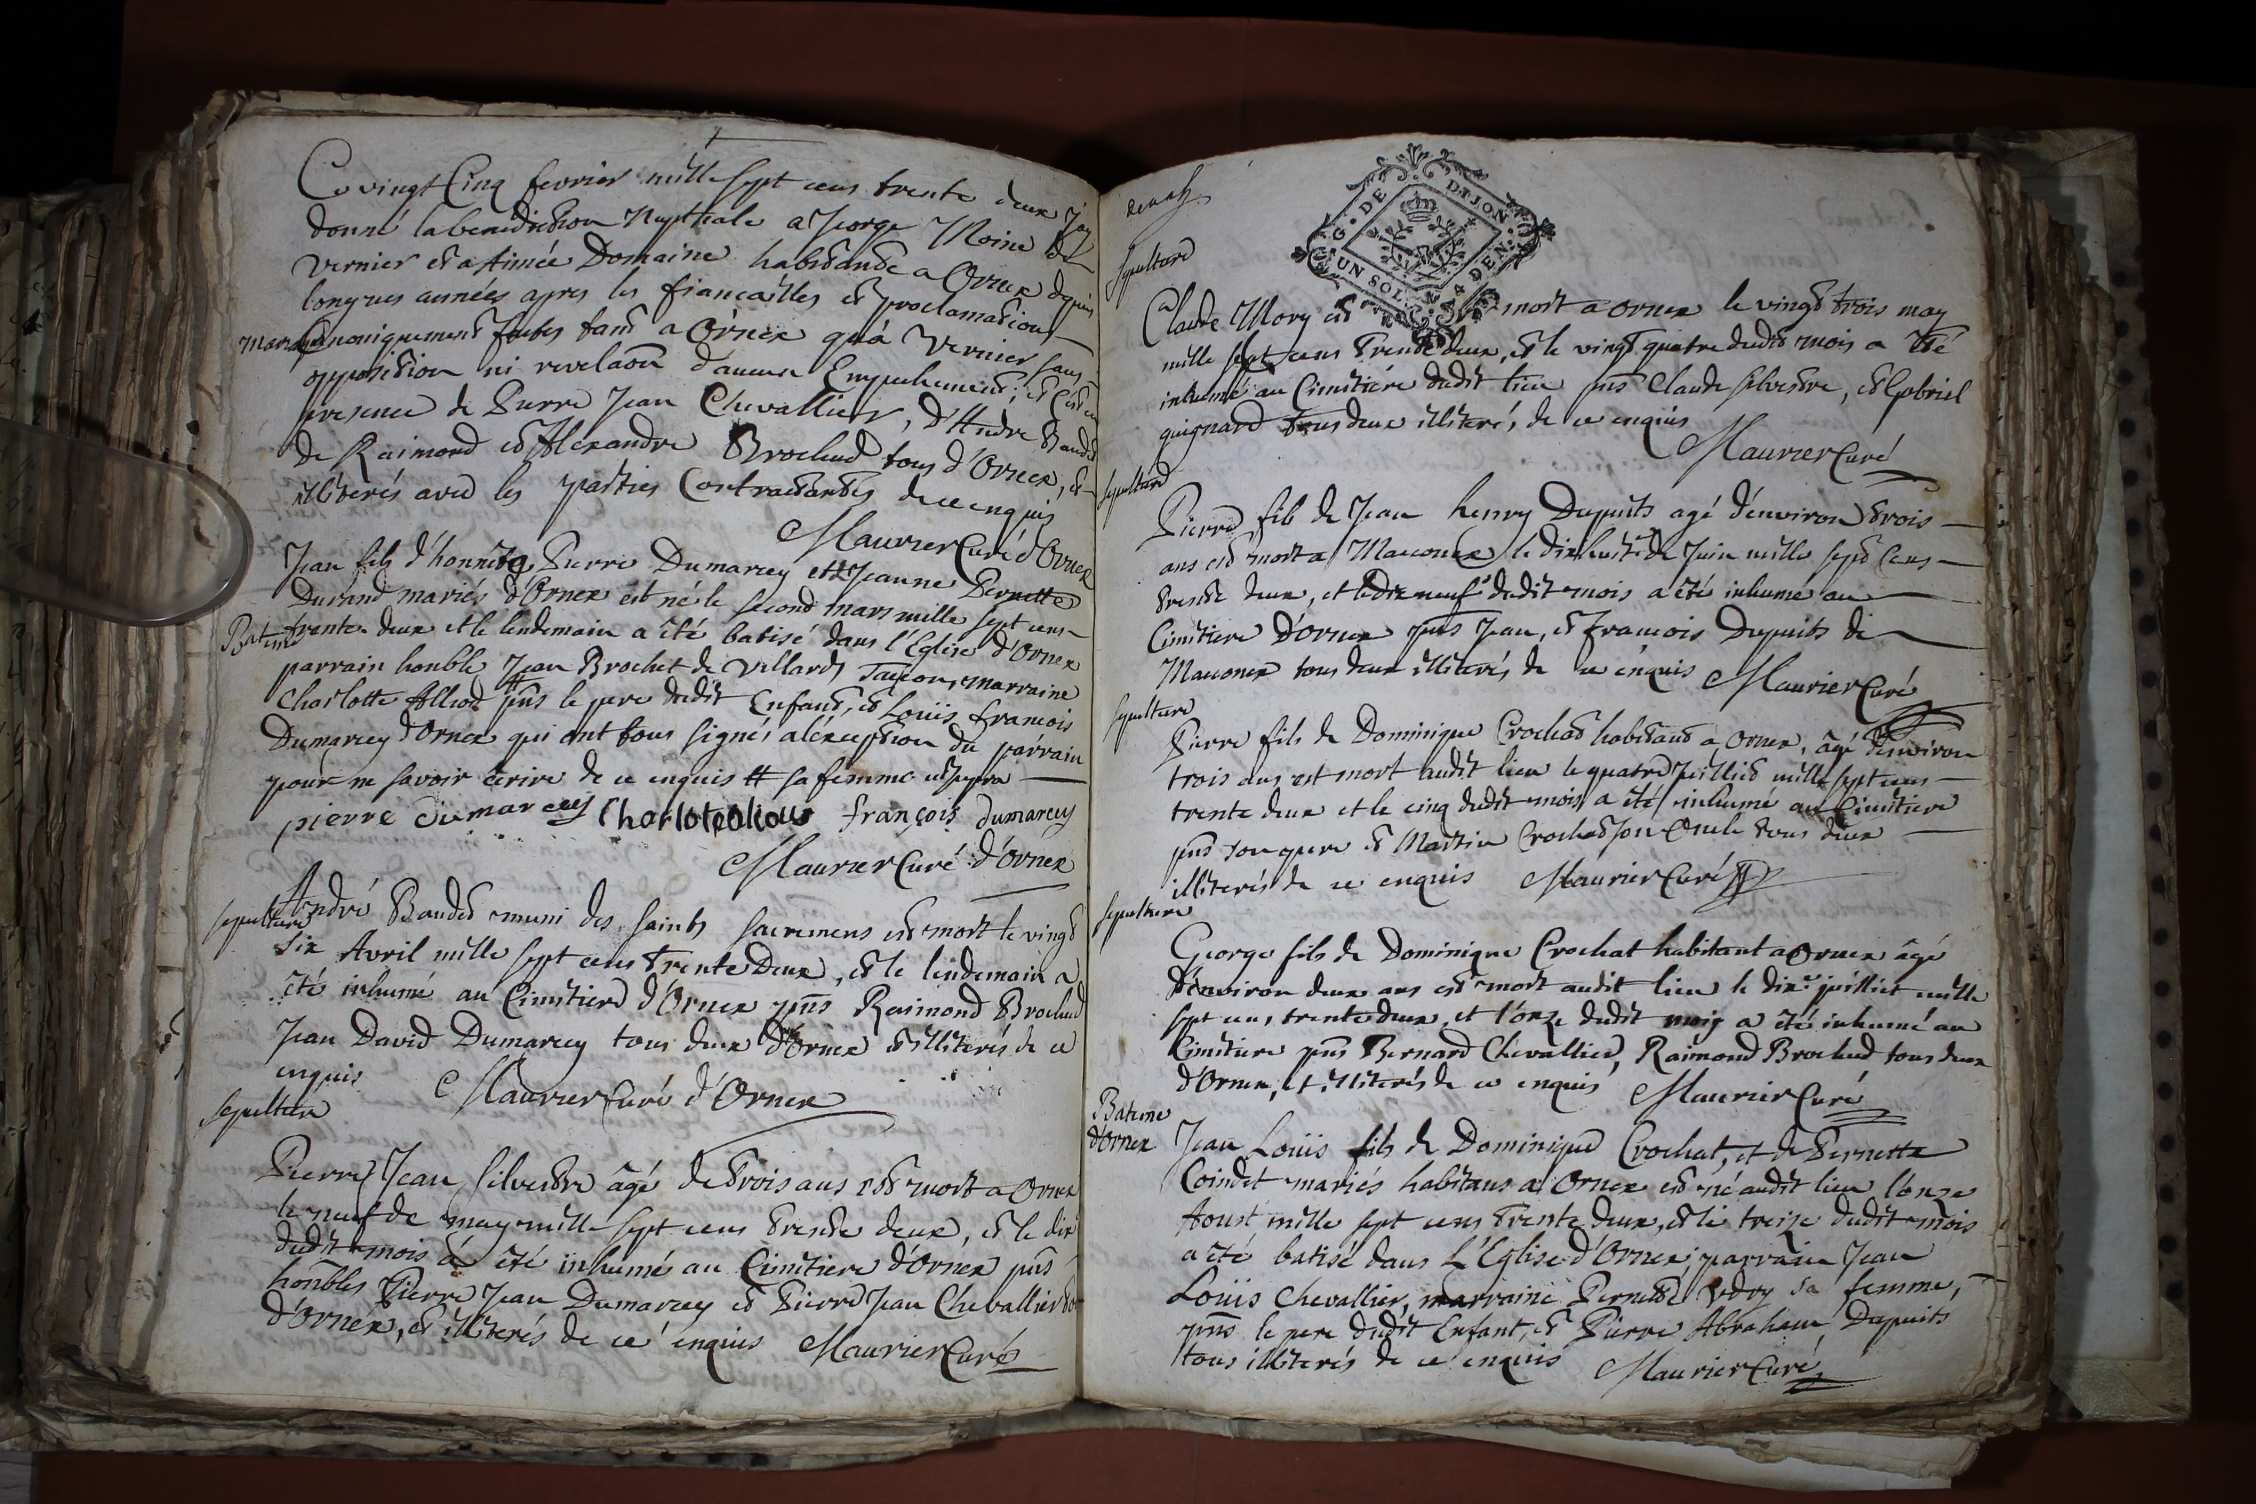 Ce vingt Cinq fevrier mille sept cens trente deux J'ay
donné la benediction Nuptiale a George Moine de
Vernier et a Aimée Domaine habitante a Ornex depuis
longues années apres les fiancailles et proclamations
Mariage
Canoniquement faites tant a Ornex qu'a Vernier sans
opposition ni revelaõn d'aucun Empechement; et C'est en
presence de Pierre Jean Chevallier, d'André Baudet
de Raimond et Alexandre Brochud tous d'Ornex, et
illiterés avec les parties Contractantes de ce enquis
Maurier Curé d'Ornex
Jean fils d'honnète Pierre Dumarcey et Jeanne Pernette
Durand mariés d'Ornex est né le second mars mille sept cens
Bateme
trente deux et le lendemain a èté batisé dans l'Eglise d'Ornex
parrain honble Jean Brochet de Villards Tacon, marraine
Charlotte Alliod # pñs le pere dudit Enfant, et Louis francois
Dumarcey d'Ornex qui ont tous signés a l'exception du parrain
pour ne savoir ècrire de ce enquis # sa femme
pierre dumarcey Charlote aliod françois dumarcey
Maurier Curé d'Ornex
sepulture
André Baudet muni des saints sacremens est mort le vingt
six Avril mille sept cens Trente Deux, et le lendemain a
èté inhumé au Cimitiere d'Ornex pñs Raimond Brochud
Jean David Dumarcey tous deux d'Ornex et illiterés de ce
enquis Maurier Curé d'Ornex
sepulture
Pierre Jean Silvestre âgé de Trois ans est mort a Ornex
le neuf de may mille sept cens Trente deux, et le dix
dudit mois a èté inhumé au Cimitiere d'Ornex pñs
hoñbles Pierre Jean Dumarcey et Pierre Jean Chevallier
d'Ornex, et illiterés de ce enquis Maurier Curé
G. DE DIJON
UN SOL 4 DEN.
sepulture
Claude Mory est mort a Ornex le vingt trois may
mille sept cens Trente deux, et le vingt quatre dudit mois a èté
inhumé au Cimitiére dudit lieu pñs Claude Silvestre, et Gabriel
guignard Tous deux illiterés de ce enquis
Maurier Curé
sepulture
Pierre fils de Jean henry Dupuits agé d'environ Trois
ans est mort a Maconex le dix huit de Juin mille sept Cens
trente deux, et le dix neuf dudit mois a èté inhumé au
Cimitiere d'Ornex pñs Jean, et Francois Dupuits de
Maconex tous deux illiterés de ce enquis Maurier Curé
sepulture
Pierre fils de Dominique Crochat habitant a Ornex, âgé d'environ
trois ans est mort audit lieu le quatre Juillet mille sept cens
trente deux et le cinq dudit mois a èté inhumé au Cimitiere
pñs son pere et Martin Crochat son oncle tous deux
illiterés de ce enquis Maurier Curé
sepulture
George fils de Dominique Crochat habitant a Ornex âgé
d'environ deux ans est mort audit lieu le dix juillet mille
sept cens trente deux et l'onze dudit mois a èté inhumé au
Cimitiere pñs Bernard Chevallier, Raimond Brochud tous deux
d'Ornex, et illiterés de ce enquis Maurier Curé
Bateme
d'Ornex
Jean Loüis fils de Dominique Crochat, et de Pernette
Coindet mariés habitans a Ornex est né audit lieu l'onze
Aoust mille sept cens Trente deux, et le treize dudit mois
a èté batisé dans L'Eglise d'Ornex; parrain Jean
Loüis Chevallier, marraine Pernette Udry sa femme,
pñs le pere dudit Enfant, et Pierre Abraham Dupuits
tous illiterés de ce enquis Maurier Curé